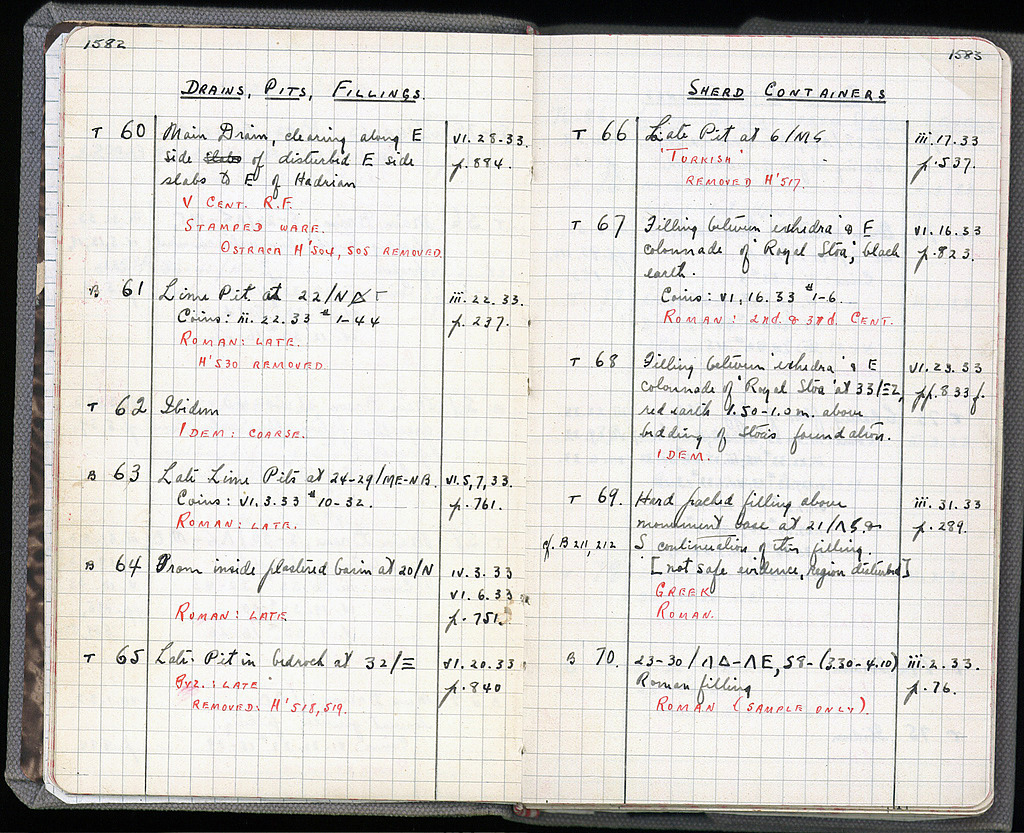 1582
DRAINS, PITS, FILLINGS.
T 60 Main Drain, clearing along E vi.28.33.
side slabs of disturbed E side p.884.
slabs to E of Hadrian
V CENT. R.F.
STAMPED WARE.
OSTRACA H'504, 505 REMOVED.
B 61 Lime Pit at 22/Ν iii.22.33.
Coins: iii.22.33 #1-44 p.237.
ROMAN: LATE.
H'530 REMOVED
T 62 Ibidem
IDEM: COARSE.
B 63 Late Lime Pits at 24-29/ΜΕ-ΝΒ. vi.5,7,33.
Coins: vi.3.33 #10-32. p.761.
ROMAN: LATE.
B 64 From inside plastered basin at 20/Ν iv.3.33
vi.6.33
ROMAN: LATE p.751.
T 65 Late Pit in bedrock at 32/Ξ vi.20.33
BYZ.: LATE p.840
REMOVED: H'518, 519.
1583
SHERD CONTAINERS
T 66 Late Pit at 6/ΜϚ iii.17.33
'TURKISH' p.537.
REMOVED H'517.
T 67 Filling between 'exhedra' & E vi.16.33
colonnade of 'Royal Stoa', black p.823.
earth.
Coins: vi,16.33 #1-6.
ROMAN: 2nd. & 3rd. CENT.
T 68 Filling between 'exhedra' & E vi.23.33
colonnade of 'Royal Stoa' at 33/ΞΖ, pp.833f.
red earth 1.50-1.0 m. above
bedding of Stoa's foundation.
IDEM.
T 69. Hard packed filling above iii.31.33
monument base at 21/ΛϚ & p.289.
cf. B 211, 212 S continuation of this filling.
[not safe evidence, region disturbed]
GREEK
ROMAN.
B 70. 23-30/ΛΔ-ΛΕ, 58-(3.30-4.10) iii.2.33.
Roman filling p.76.
ROMAN (SAMPLE ONLY).